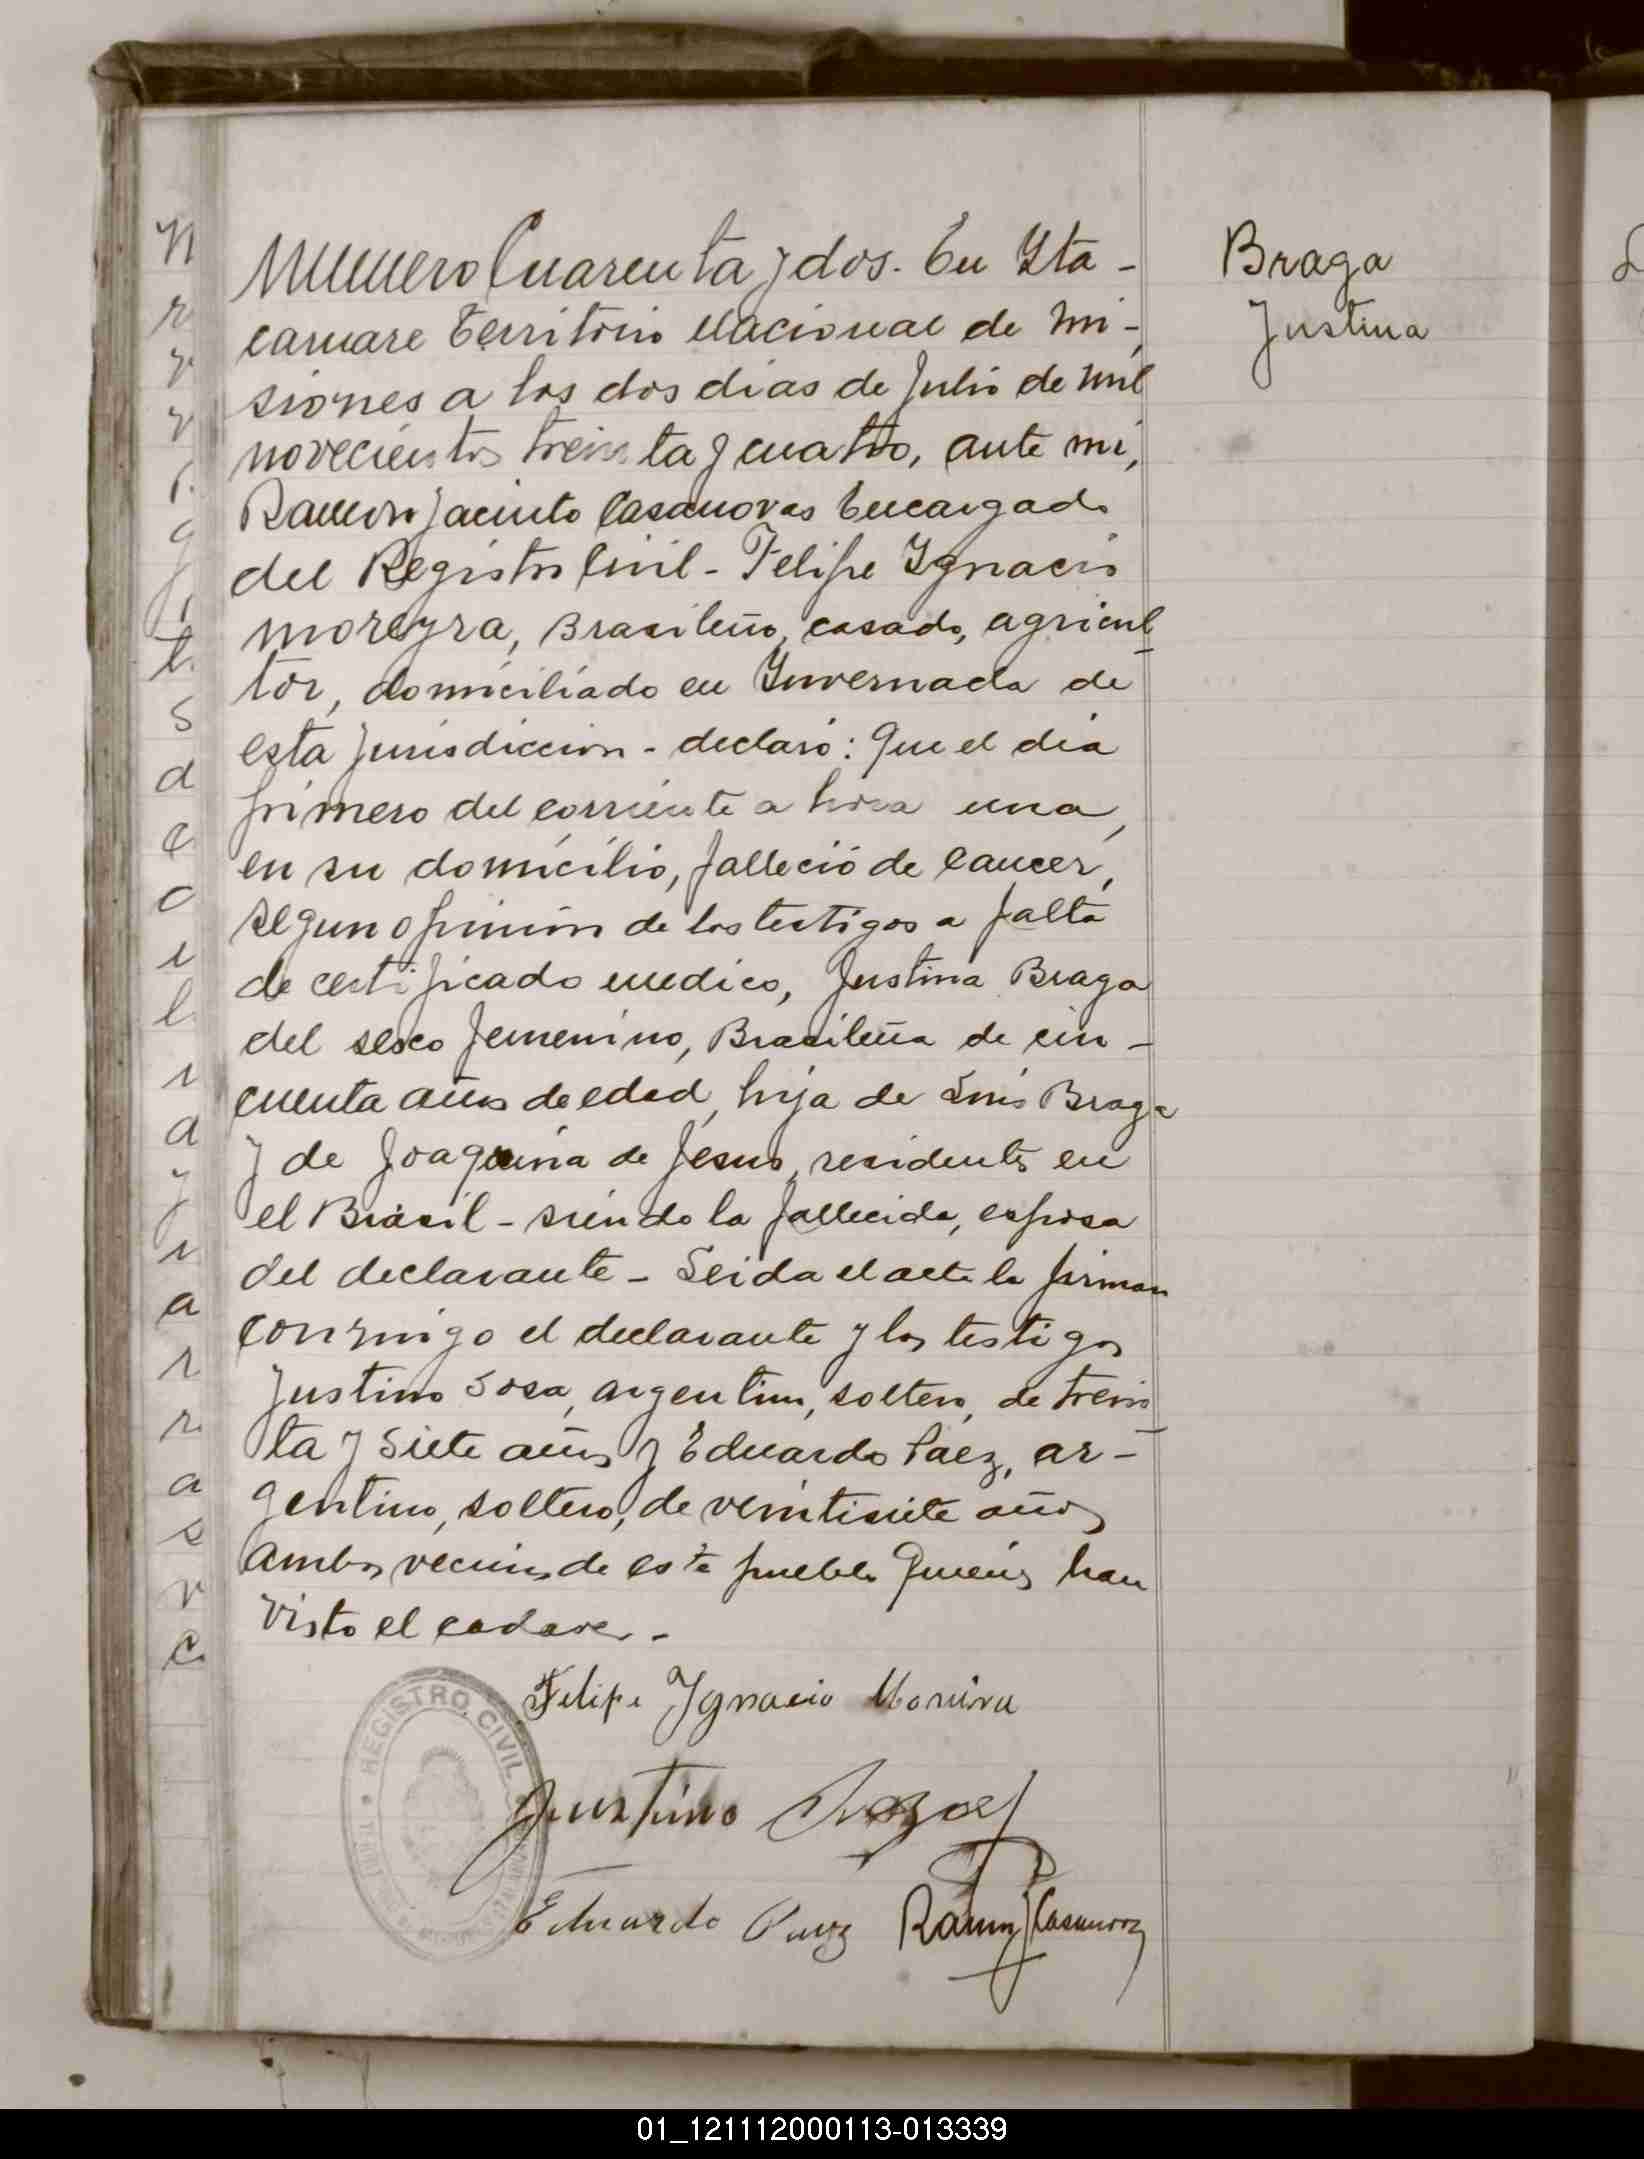 Numero Cuarenta y dos. En Ita-
caruare Territorio Nacional de Mi-
siones a los dos dias de Julio de mil
novecientos treinta y cuatro, ante mi,
Ramon Jacinto Casanovas Encargado
del Registro Civil - Felipe Ignacio
Moreyra, Brasileño, casado, agricul-
tor, domiciliado en Invernada de
esta Jurisdiccion - declaró: Que el dia
primero del corriente a hora una,
en su domicilio, falleció de Cancer,
segun opinion de los testigos a falta
de certificado medico, Justina Braga
del sexo femenino, Brasileña de cin-
cuenta años de edad, hija de Luis Braga
y de Joaquina de Jesus, residentes en
el Brasil - siendo la fallecida, esposa
del declarante - Leida el acta la firman
conmigo el declarante y los testigos
Justino Sosa, argentino, soltero, de trein-
ta y siete años y Eduardo Paez, ar-
gentino, soltero, de veintisiete años
ambos vecinos de este pueblo Quienes han
visto el cadaver -
Felipe Ignacio Moreira
Justino Sosa
Eduardo Paez Ramon J Casanovas
REGISTRO CIVIL
Braga
Justina
01_121112000113-013339